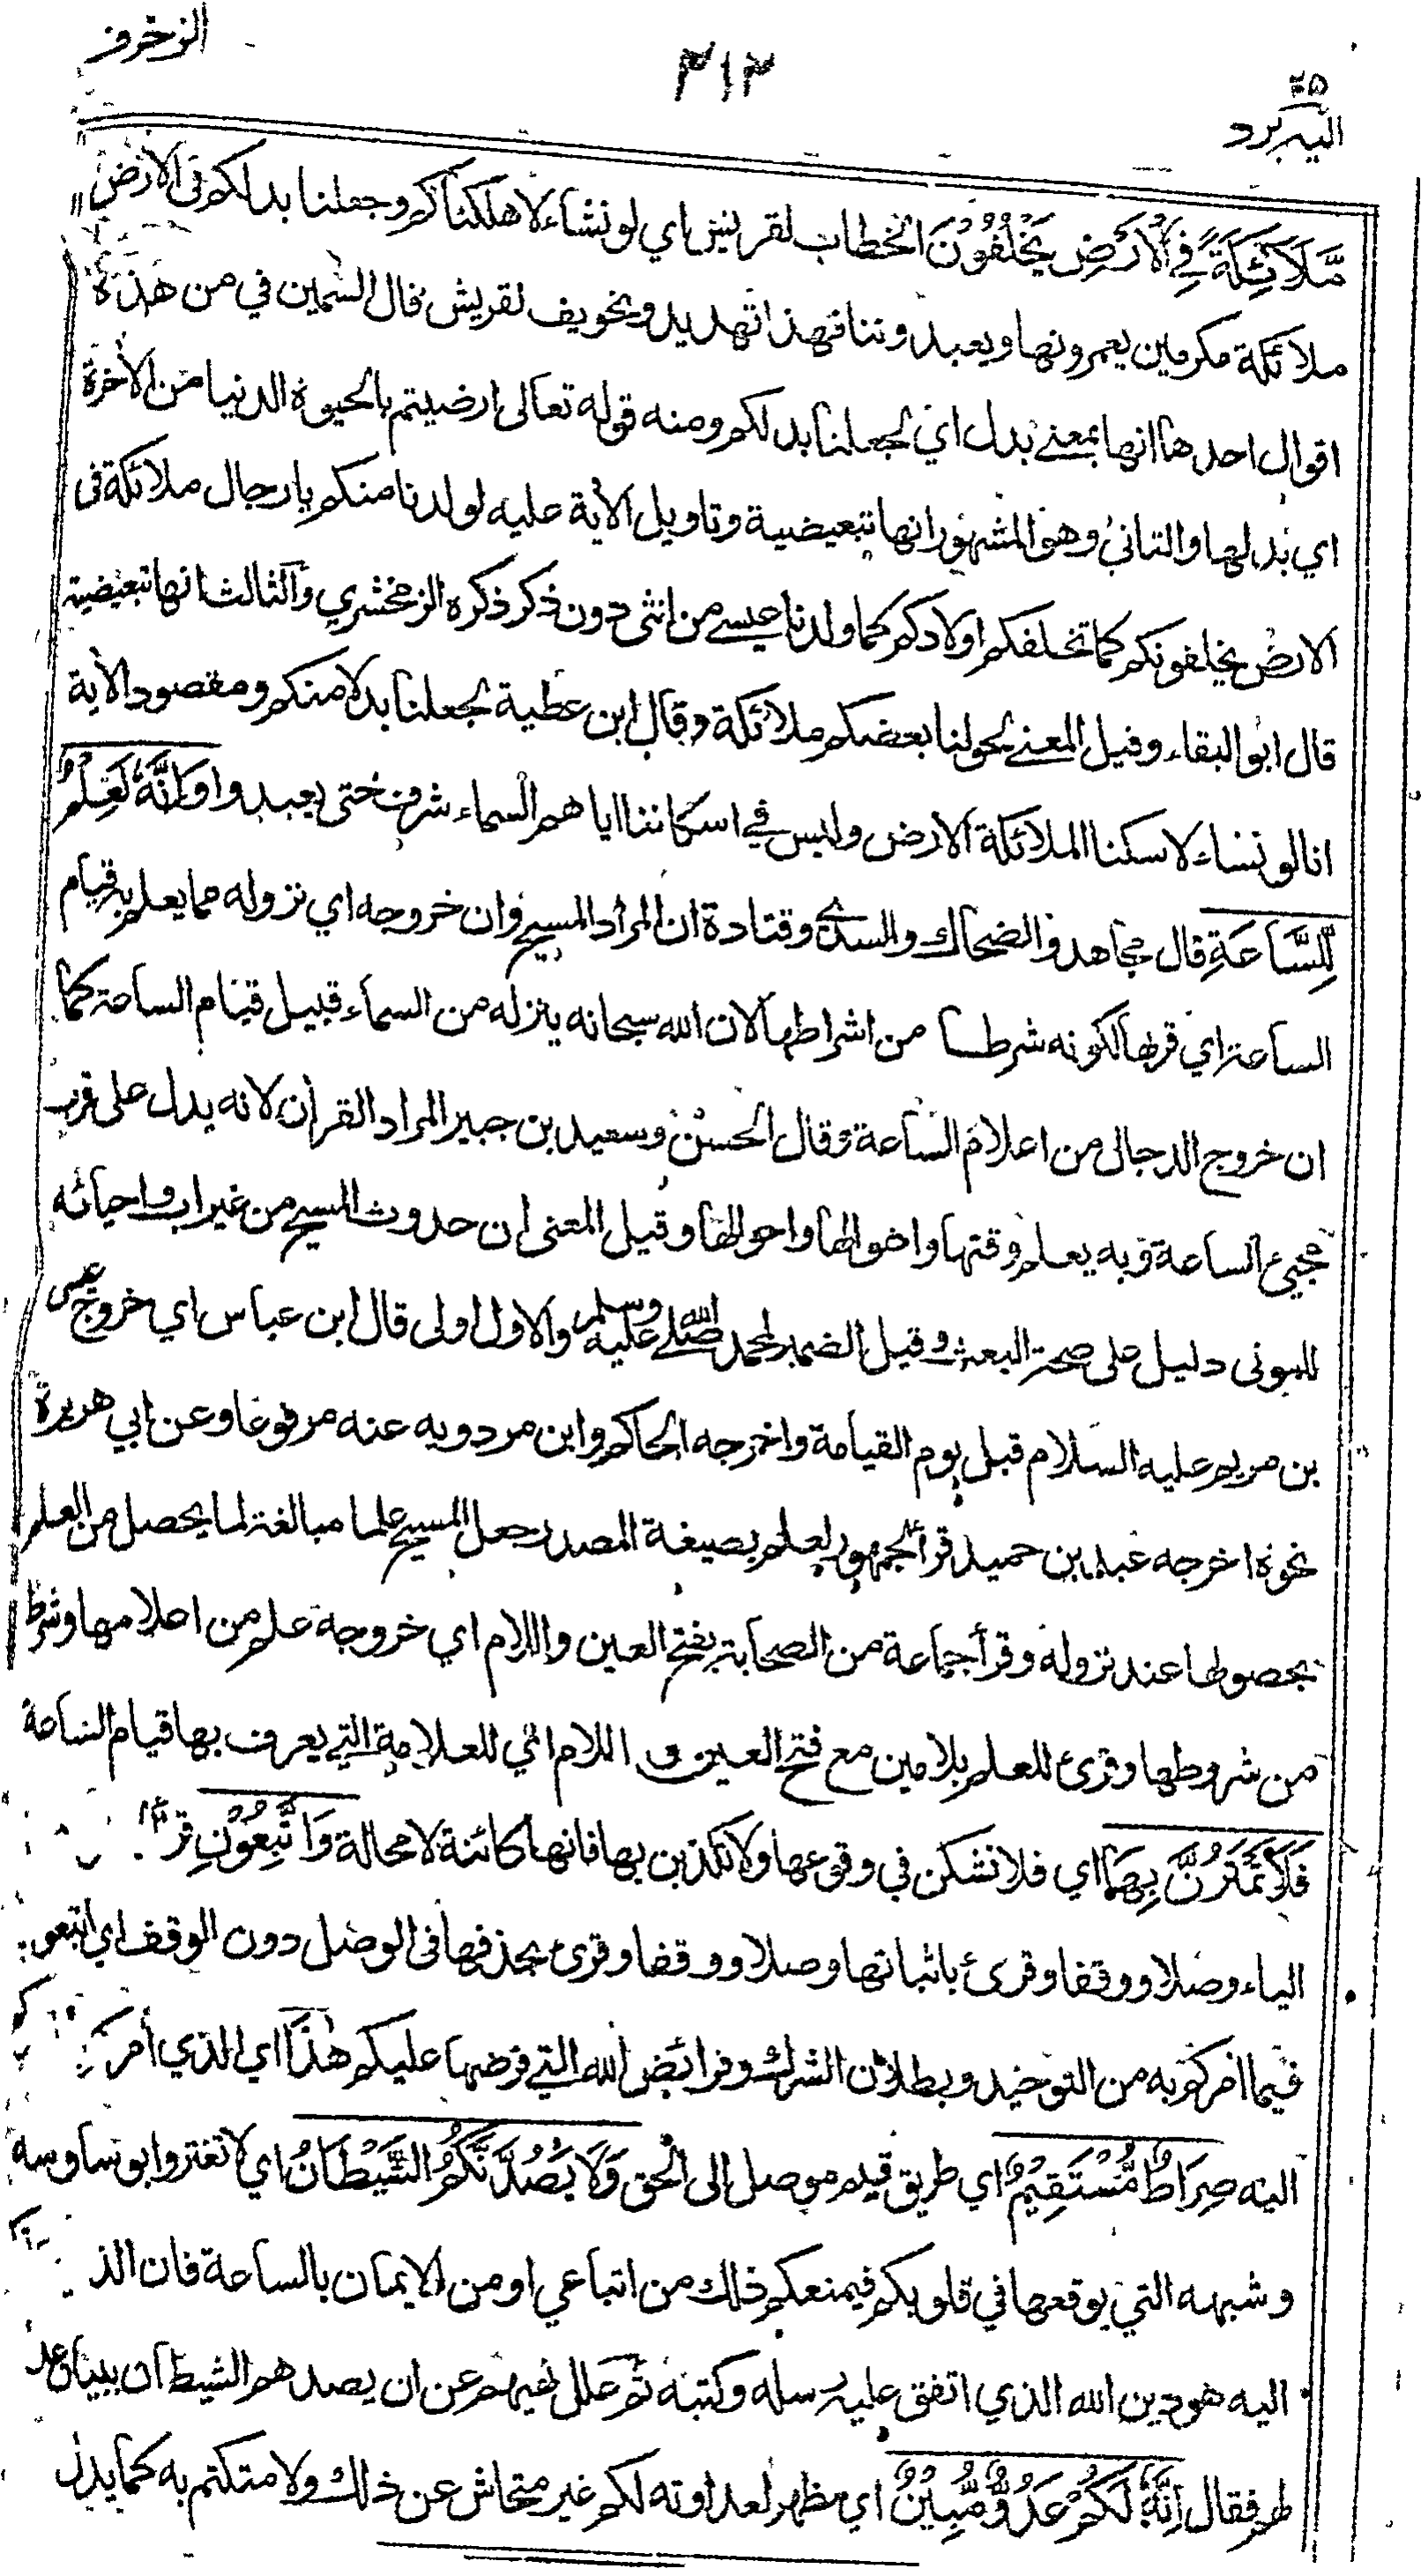 الزخرف
٣١٣
٢٥
اليه يرد
مَّلَائِكَةً فِي الْأَرْضِ يَخْلُفُوْنَ الخطاب لقريش اي لو نشاء لاهلكناكم وجعلنا بدلكم في الارض
ملائكة مكرمين يعمرونها ويعبدوننا فهذا تهديد وتخويف لقريش قال السمين في من هذه
اقوال احدها انها بمعنى بدل اي لجعلنا بدلكم ومنه قوله تعالى ارضيتم بالحيوة الدنيا من الاخرة
اي بدلها والثاني وهو المشهور انها تبعيضية وتاويل الاية عليه لولدنا منكم يا رجال ملائكة في
الارض يخلفونكم كما تخلفكم اولادكم كما ولدنا عيسى من انثى دون ذكر ذكره الزمخشري والثالث انها تبعيضية
قال ابو البقاء وقيل المعنى لحولنا بعضكم ملائكة وقال ابن عطية لجعلنا بدلا منكم ومقصود الاية
انا لو نشاء لاسكنا الملائكة الارض وليس في اسكاننا اياهم السماء شرف حتى يعبدوا وَإِنَّهُ لَعِلْمٌ
لِّلسَّاعَةِ قال مجاهد والضحاك والسدي وقتادة ان المراد المسيح وان خروجه اي نزوله مما يعلم به قيام
الساعة اي قربها لكونه شرطا من اشراطها لان الله سبحانه ينزله من السماء قبيل قيام الساعة كما
ان خروج الدجال من اعلام الساعة وقال الحسن وسعيد بن جبير المراد القرأن لانه يدل على قرب
مجيئ الساعة وبه يعلم وقتها واهوالها واحوالها وقيل المعنى ان حدوث المسيح من غير اب واحيائه
للموتى دليل على صحة البعث وقيل الضمير لمحمد صلى الله عليه وسلم والاول اولى قال ابن عباس اي خروج عيسى
بن مريم عليه السلام قبل يوم القيامة واخرجه الحاكم وابن مردويه عنه مرفوعا وعن ابي هريرة
نحوه اخرجه عبد بن حميد قرأ الجمهور لعلم بصيغة المصدر جعل المسيح علما مبالغة لما يحصل من العلم
بحصولها عند نزوله وقرأ جماعة من الصحابة بفتح العين واللام اي خروجه علم من اعلامها وشرط
من شروطها وقرئ للعلم بلامين مع فتح العين و اللام اي للعلامة التي يعرف بها قيام الساعة
فَلَا تَمْتَرُنَّ بِهَا اي فلا تشكن في وقوعها ولا تكذبن بها فانها كائنة لا محالة وَاتَّبِعُوْنِ قرأ
الياء وصلا ووقفا وقرئ باثباتها وصلا ووقفا وقرئ بحذفها في الوصل دون الوقف اي اتبعو
فيما امركم به من التوحيد وبطلان الشرك وفرائض الله التي فرضها عليكم هٰذَا اي الذي أمر
اليه صِرَاطٌ مُّسْتَقِيْمٌ اي طريق قيم موصل الى الحق وَلَا يَصُدَّنَّكُمُ الشَّيْطَانُ اي لا تغتروا بوساوسه
وشبهه التي يوقعها في قلوبكم فيمنعكم ذلك من اتباعي او من الايمان بالساعة فان الذ
اليه هو دين الله الذي اتفق عليه رسله وكتبه ثم علل نهيهم عن ان يصدهم الشيطان ببيان
لهم فقال اِنَّهٗ لَكُمْ عَدُوٌّ مُّبِيْنٌ اي مظهر لعداوته لكم غير متحاش عن ذلك ولا متكتم به كما يدل